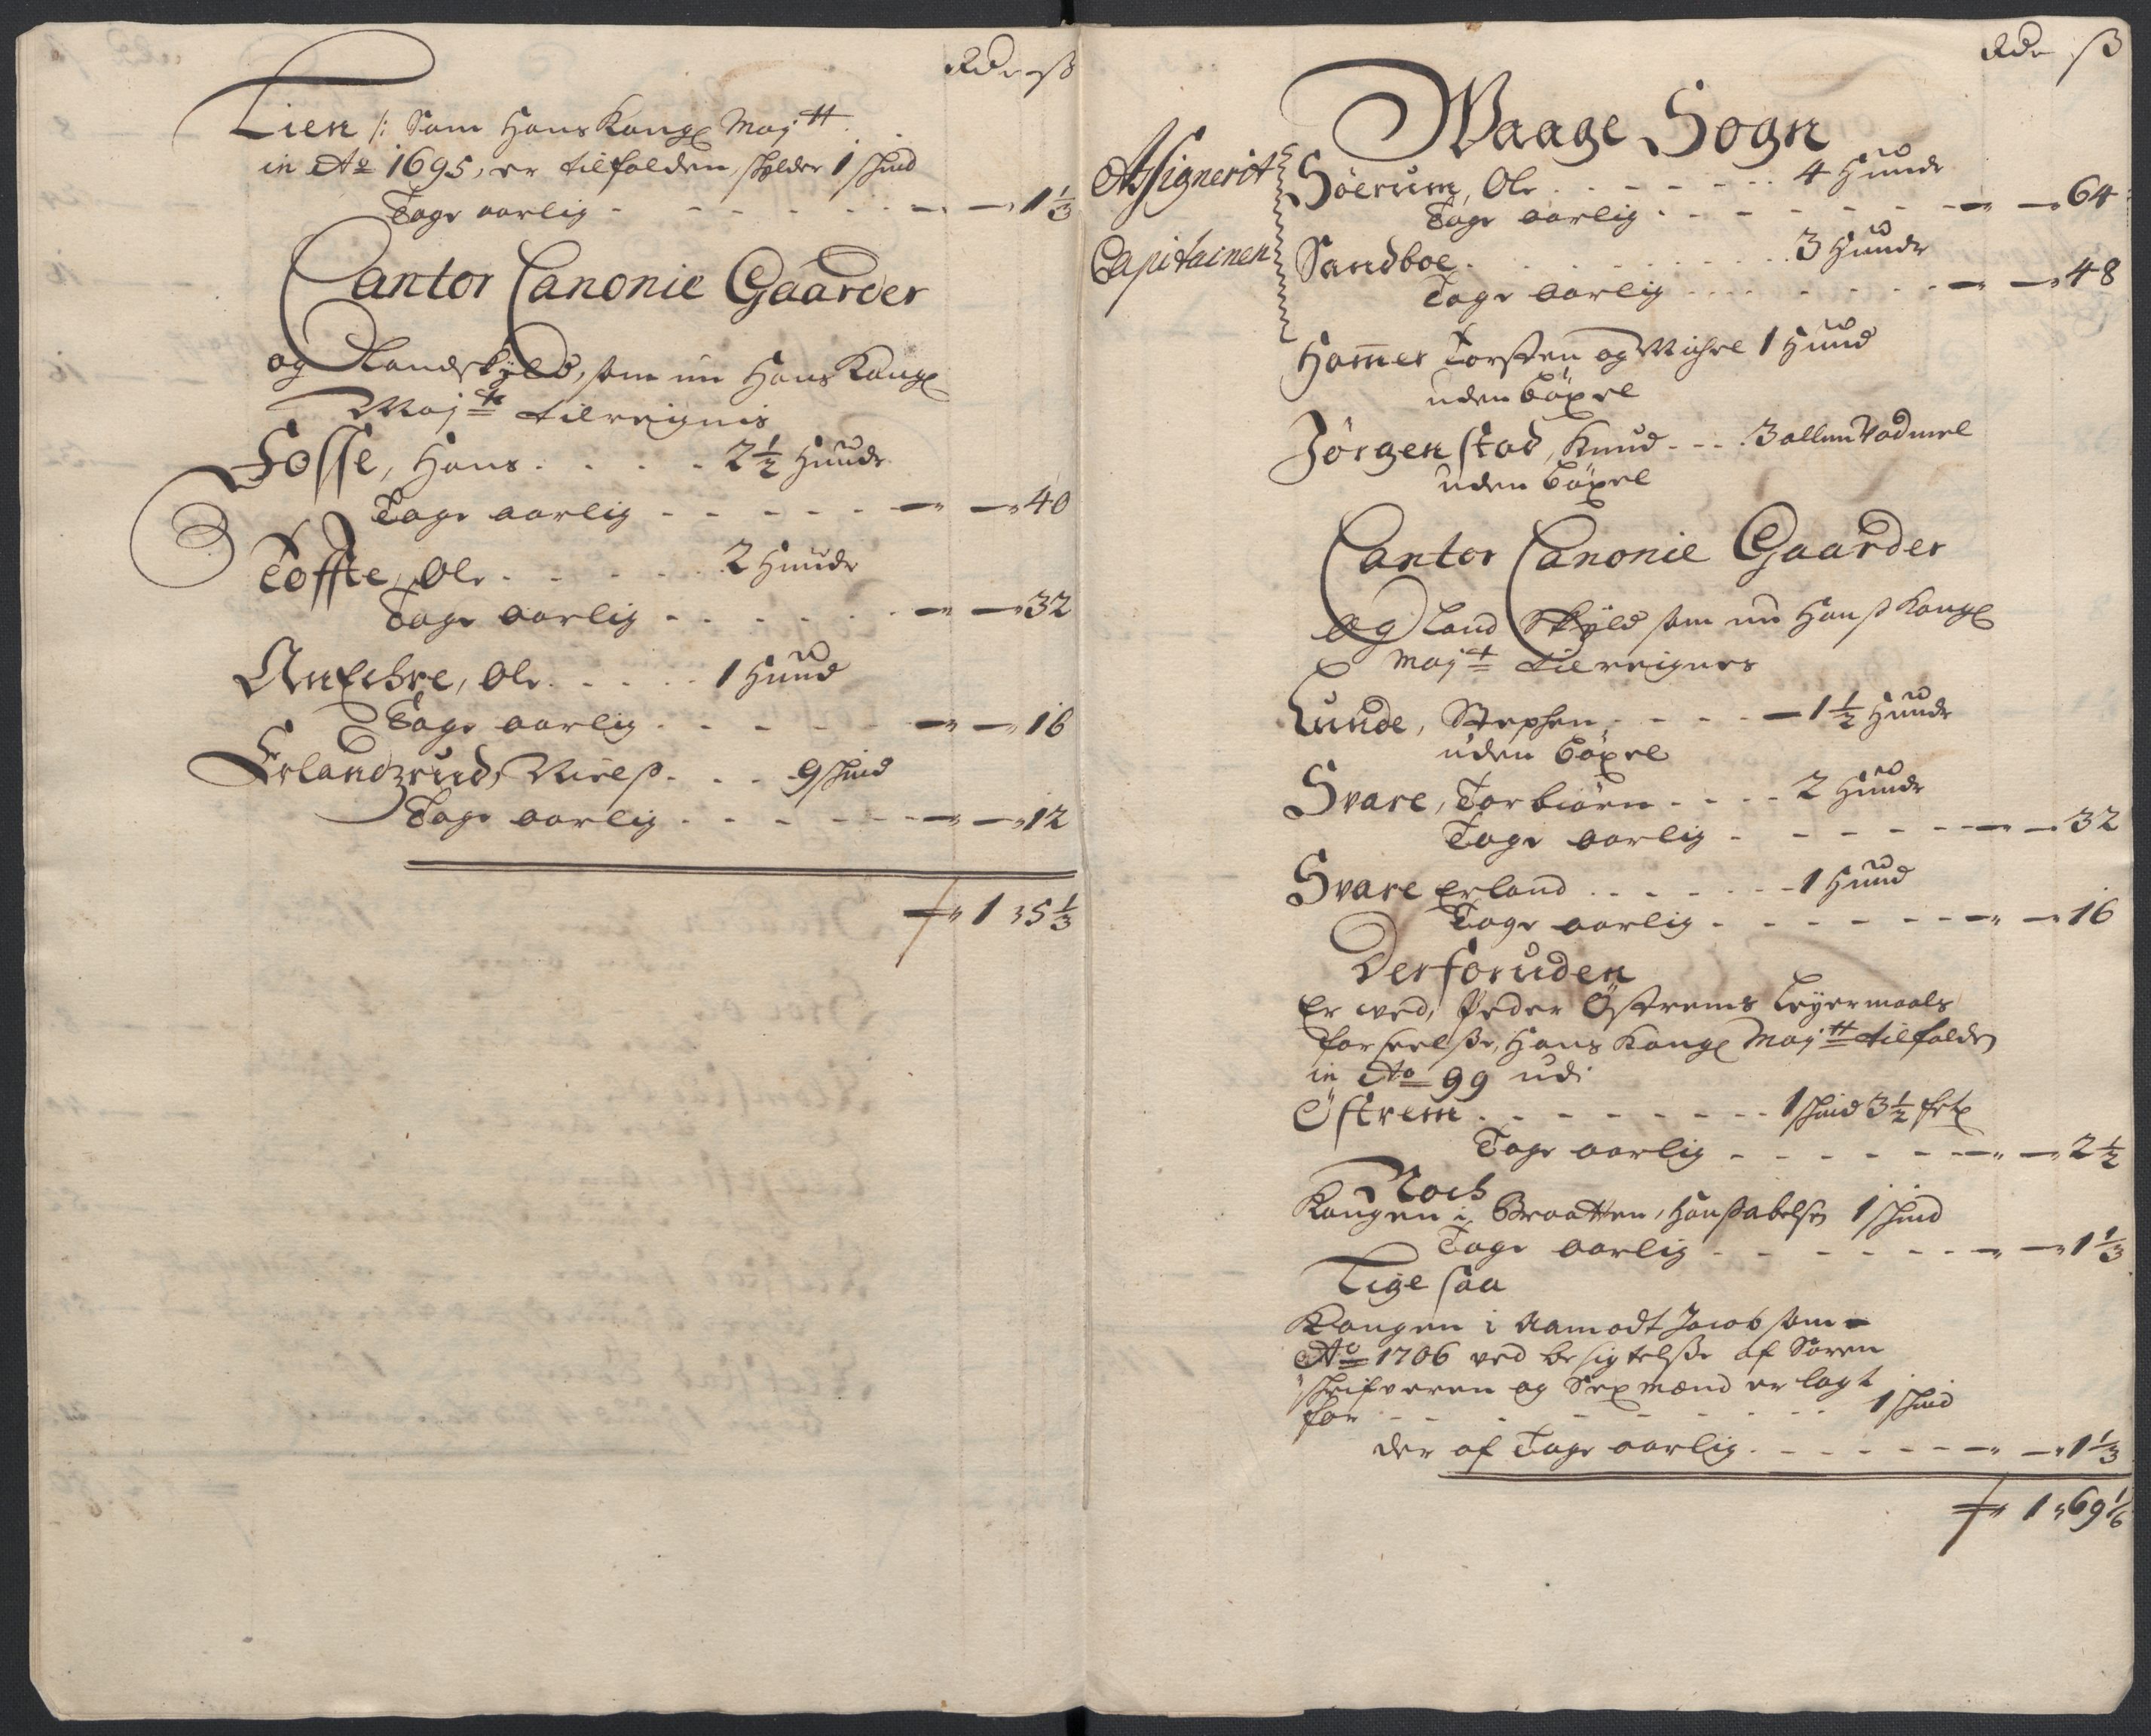 Rdr ß
Lien /: Som Hans Kongl Maytt
in Ao 1695, er tilfalden, skylder 1 skind
Tage aarlig - - - - - - 1 1/3
Cantor Canonie Gaarder
og Landskyld, som nu Hans Kongl
Maytt tilreignis
Fosse, Hans . . . . 2 1/2 Hunde
Tage aarlig - - - - - 40
Toffte, Ole . . . . . 2 Hunde
Tage aarlig - - - - - 32
Ole . . . . 1 Hund
Tage aarlig . - - - - 16
Erlandzrud, Nielß . . . 9 skind
Tage aarlig . - - - - 12
1 35 1/3
Rdr ß
Waage Sogn
Assignerit
Capitainen
Söerum, Ole . . . . . . 4 Hunde
Tage aarlig . - - - - 64
Sandboe . . . . . . 3 Hunde
Tage aarlig . . . . . 48
Ham̄er Torsten og 1 Hund
uden böxel
Jörgenstad, Knud - - . 3 allen Vadmel
uden böxel
Cantor Canonie Gaarder
og Land Skyld som nu Hanß Kongl
Maytt tilreignes
Lunde, Stephen . - - - 1 1/2 Hunde
uden böxel
Svare, Torbiörn . . . . 2 Hunde
Tage aarlig - - - - - 32
Svare Erland . . . . . 1 Hund
Tage aarlig . - - - - 16
Derforuden
Er ved, Peder Östrems Leyermaals
forseelße, Hans Kongl Maytt tilfalden
in Ao 99 udi
Östrem . - - - - - 1 skind 3 1/2
Tage aarlig - - - - - 2 1/2
Noch
Kongen i Braatten, 1 skind
Tage aarlig . - - - - 1 1/3
Lige saa
Kongen i Aamodt Jacob som
Ao 1706 ved besigtelße af Soren
skrifveren og Sex mænd er lagt
for - - . - - - 1 skind
der af Tage aarlig . - - - - 1 1/3
1 69 1/6